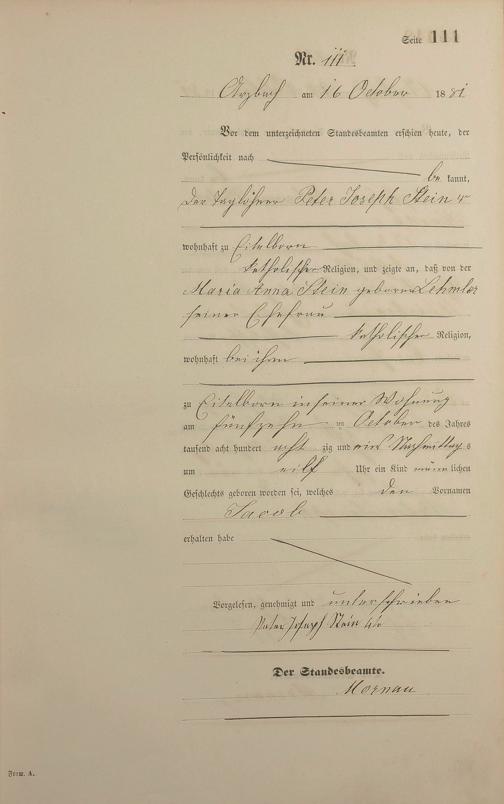 Seite 111
Nr. 111
Arzbach am 16 October 1881
Vor dem unterzeichneten Standesbeamten erschien heute, der
Persönlichkeit nach
be kannt,
der Taglöhner Peter Joseph Stein
wohnhaft zu Eitelborn
katholischer Religion, und zeigte an, daß von der
Maria Anna Stein geborene Lehmler
seiner Ehefrau
katholischer Religion,
wohnhaft bei ihm
zu Eitelborn in seiner Wohnung
am fünfzehn October des Jahres
tausend acht hundert acht zig und ein Nachmittags
um eilf Uhr ein Kind männ lichen
Geschlechts geboren worden sei, welches den Vornamen
Jacob
erhalten habe
Vorgelesen, genehmigt und unterschrieben
Peter Joseph Stein
Der Standesbeamte.
Mornau
Form. A.